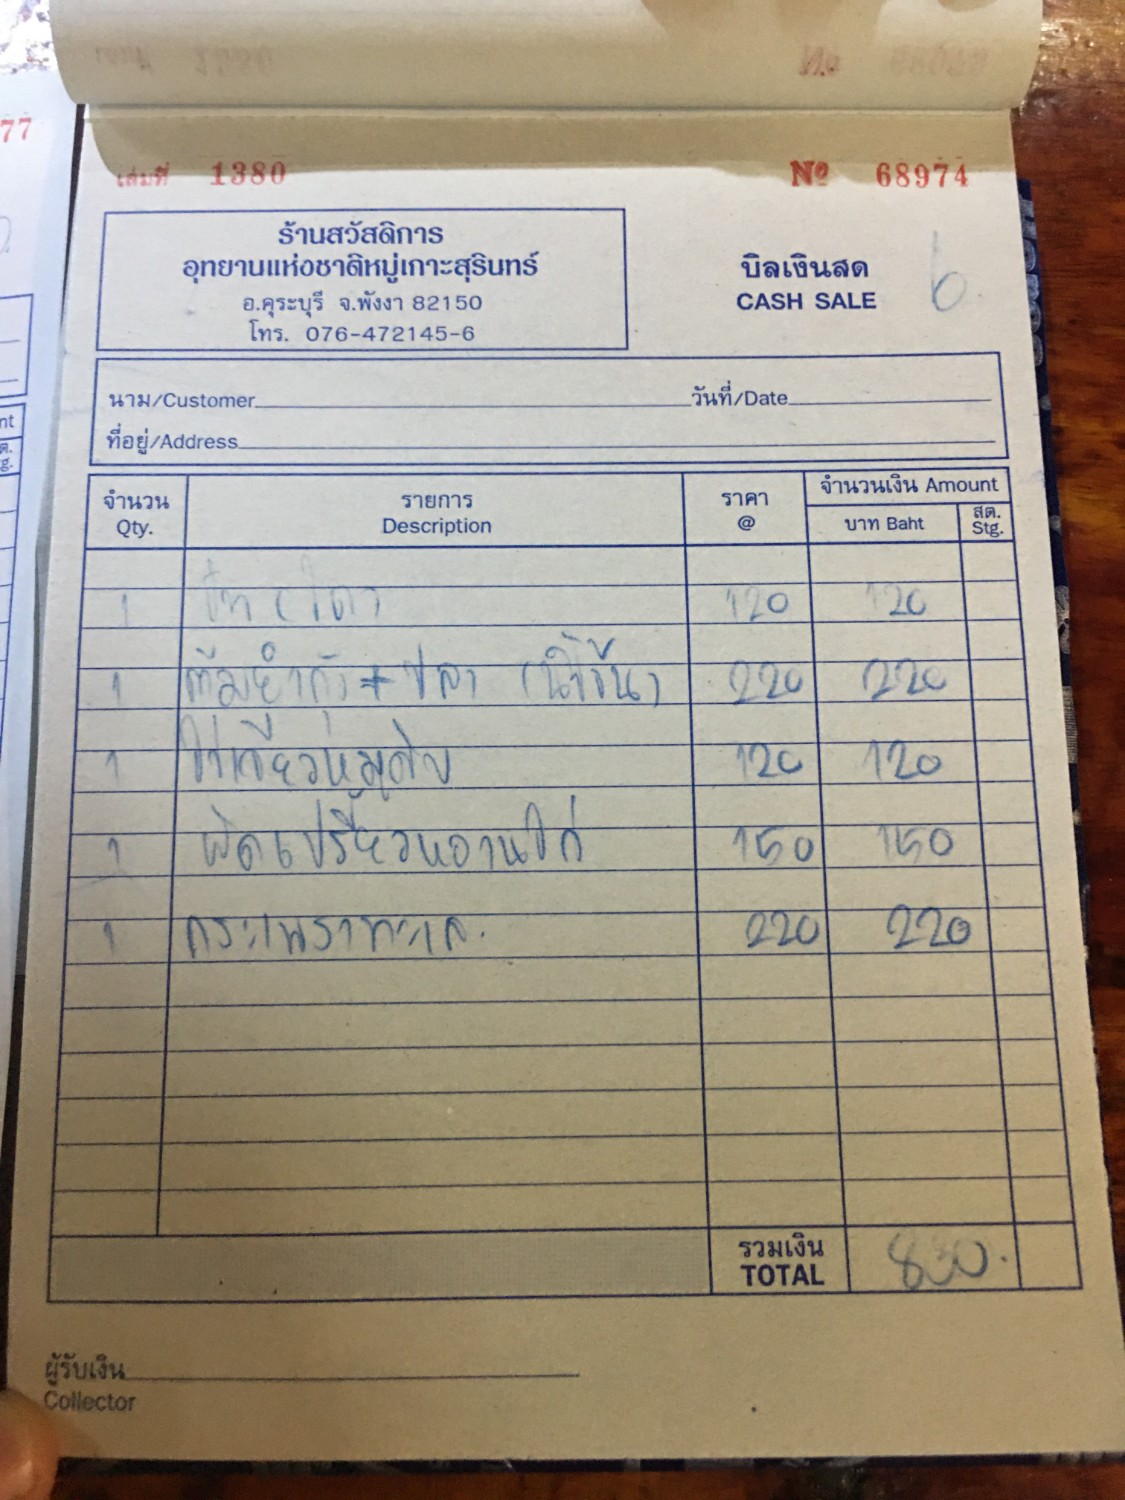 77
เล่มที่ 1380 Nº 68974
ร้านสวัสดิการ
อุทยานแห่งชาติหมู่เกาะสุรินทร์
อ.คุระบุรี จ.พังงา 82150
โทร. 076-472145-6
บิลเงินสด
CASH SALE
6
นาม/Customer วันที่/Date
ที่อยู่/Address
จำนวน รายการ ราคา จำนวนเงิน Amount
Qty. Description @ บาท Baht สต. Stg.
1 ข้าว (โถ) 120 120
1 ต้มยำกุ้ง + ปลา (น้ำข้น) 220 220
1 ไข่เจียวหมูสับ 120 120
1 ผัดเปรี้ยวหวานไก่ 150 150
1 กระเพราทะเล. 220 220
รวมเงิน
TOTAL 830.
ผู้รับเงิน
Collector